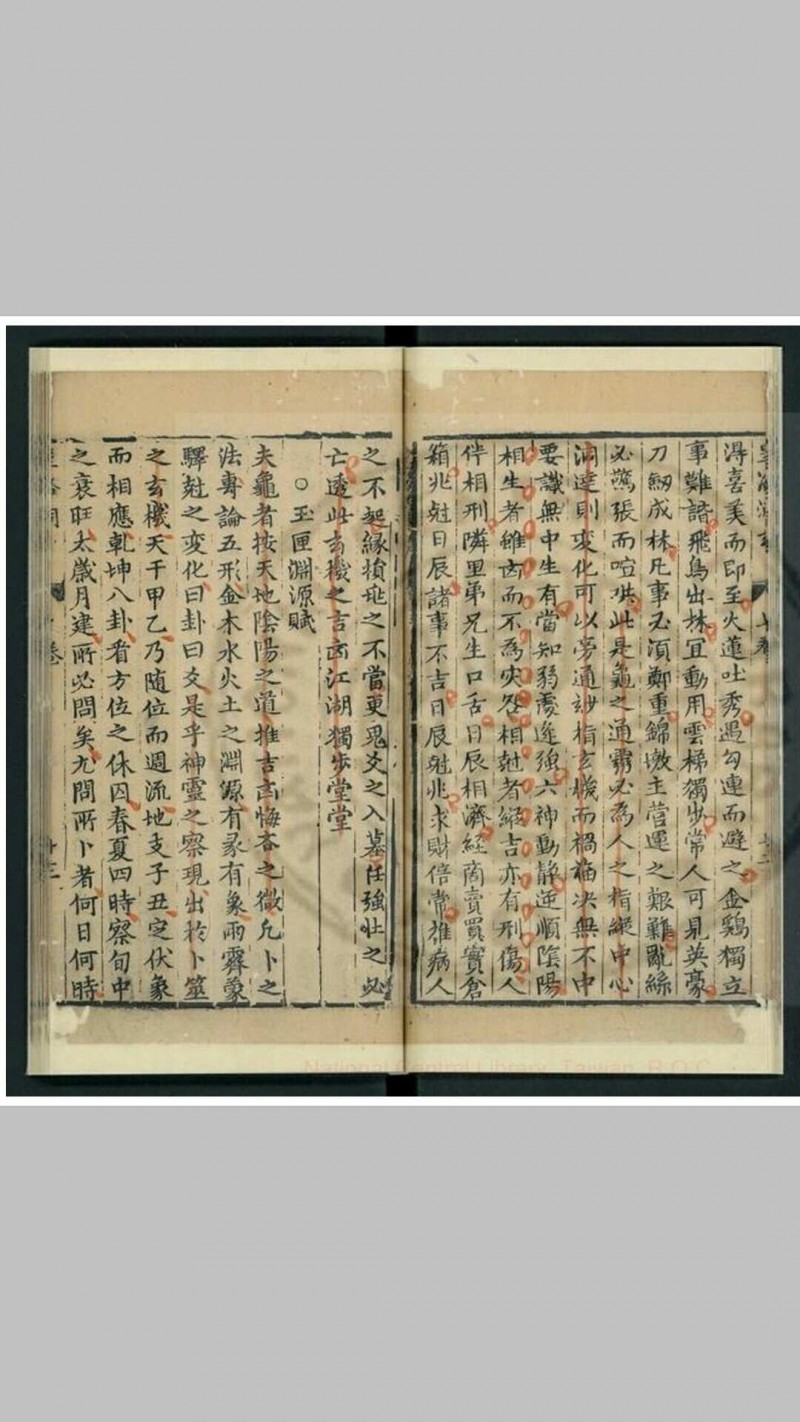 淂喜美而即至火蓮吐秀遇勾連而避之金鷄獨立
事難諧飛鳥出林宜動用雲梯獨步常人可見英豪
刀劒成林凡事必須鄭重錦墩主营運之艱難亂絲
必驚張而喧哄此是龜之通霛必為人之指縱中心
洞達則变化可以旁通玅指玄機而禍福决無不中
要識無中生有當知弱處逢強六神動静逆順陰陽
相生者雖凶而不為灾怨相尅者縂吉亦有刑傷人
伴相刑隣里弟兄生口舌日辰相濟經商賣買實倉
箱兆尅日辰諸事不吉日辰尅兆求財倍常推病人
之不起緣損身之不當更見爻之入墓任強壮之必
亡透此玄機之吉凶江湖獨步堂堂
○玉匣淵源賦
夫龜者按天地陰陽之道推吉凶悔吝之徵凢卜之
法專論五形金木水火土之淵源有彖有象雨霽蒙
驛尅之变化曰卦曰爻是乎神靈之察現出於卜筮
之玄機天干甲乙乃随位而週流地支子丑定伏象
而相應乾坤八卦看方位之休囚春夏四時察旬中
之衰旺太歲月建所必問矣凢問所卜者何日何時